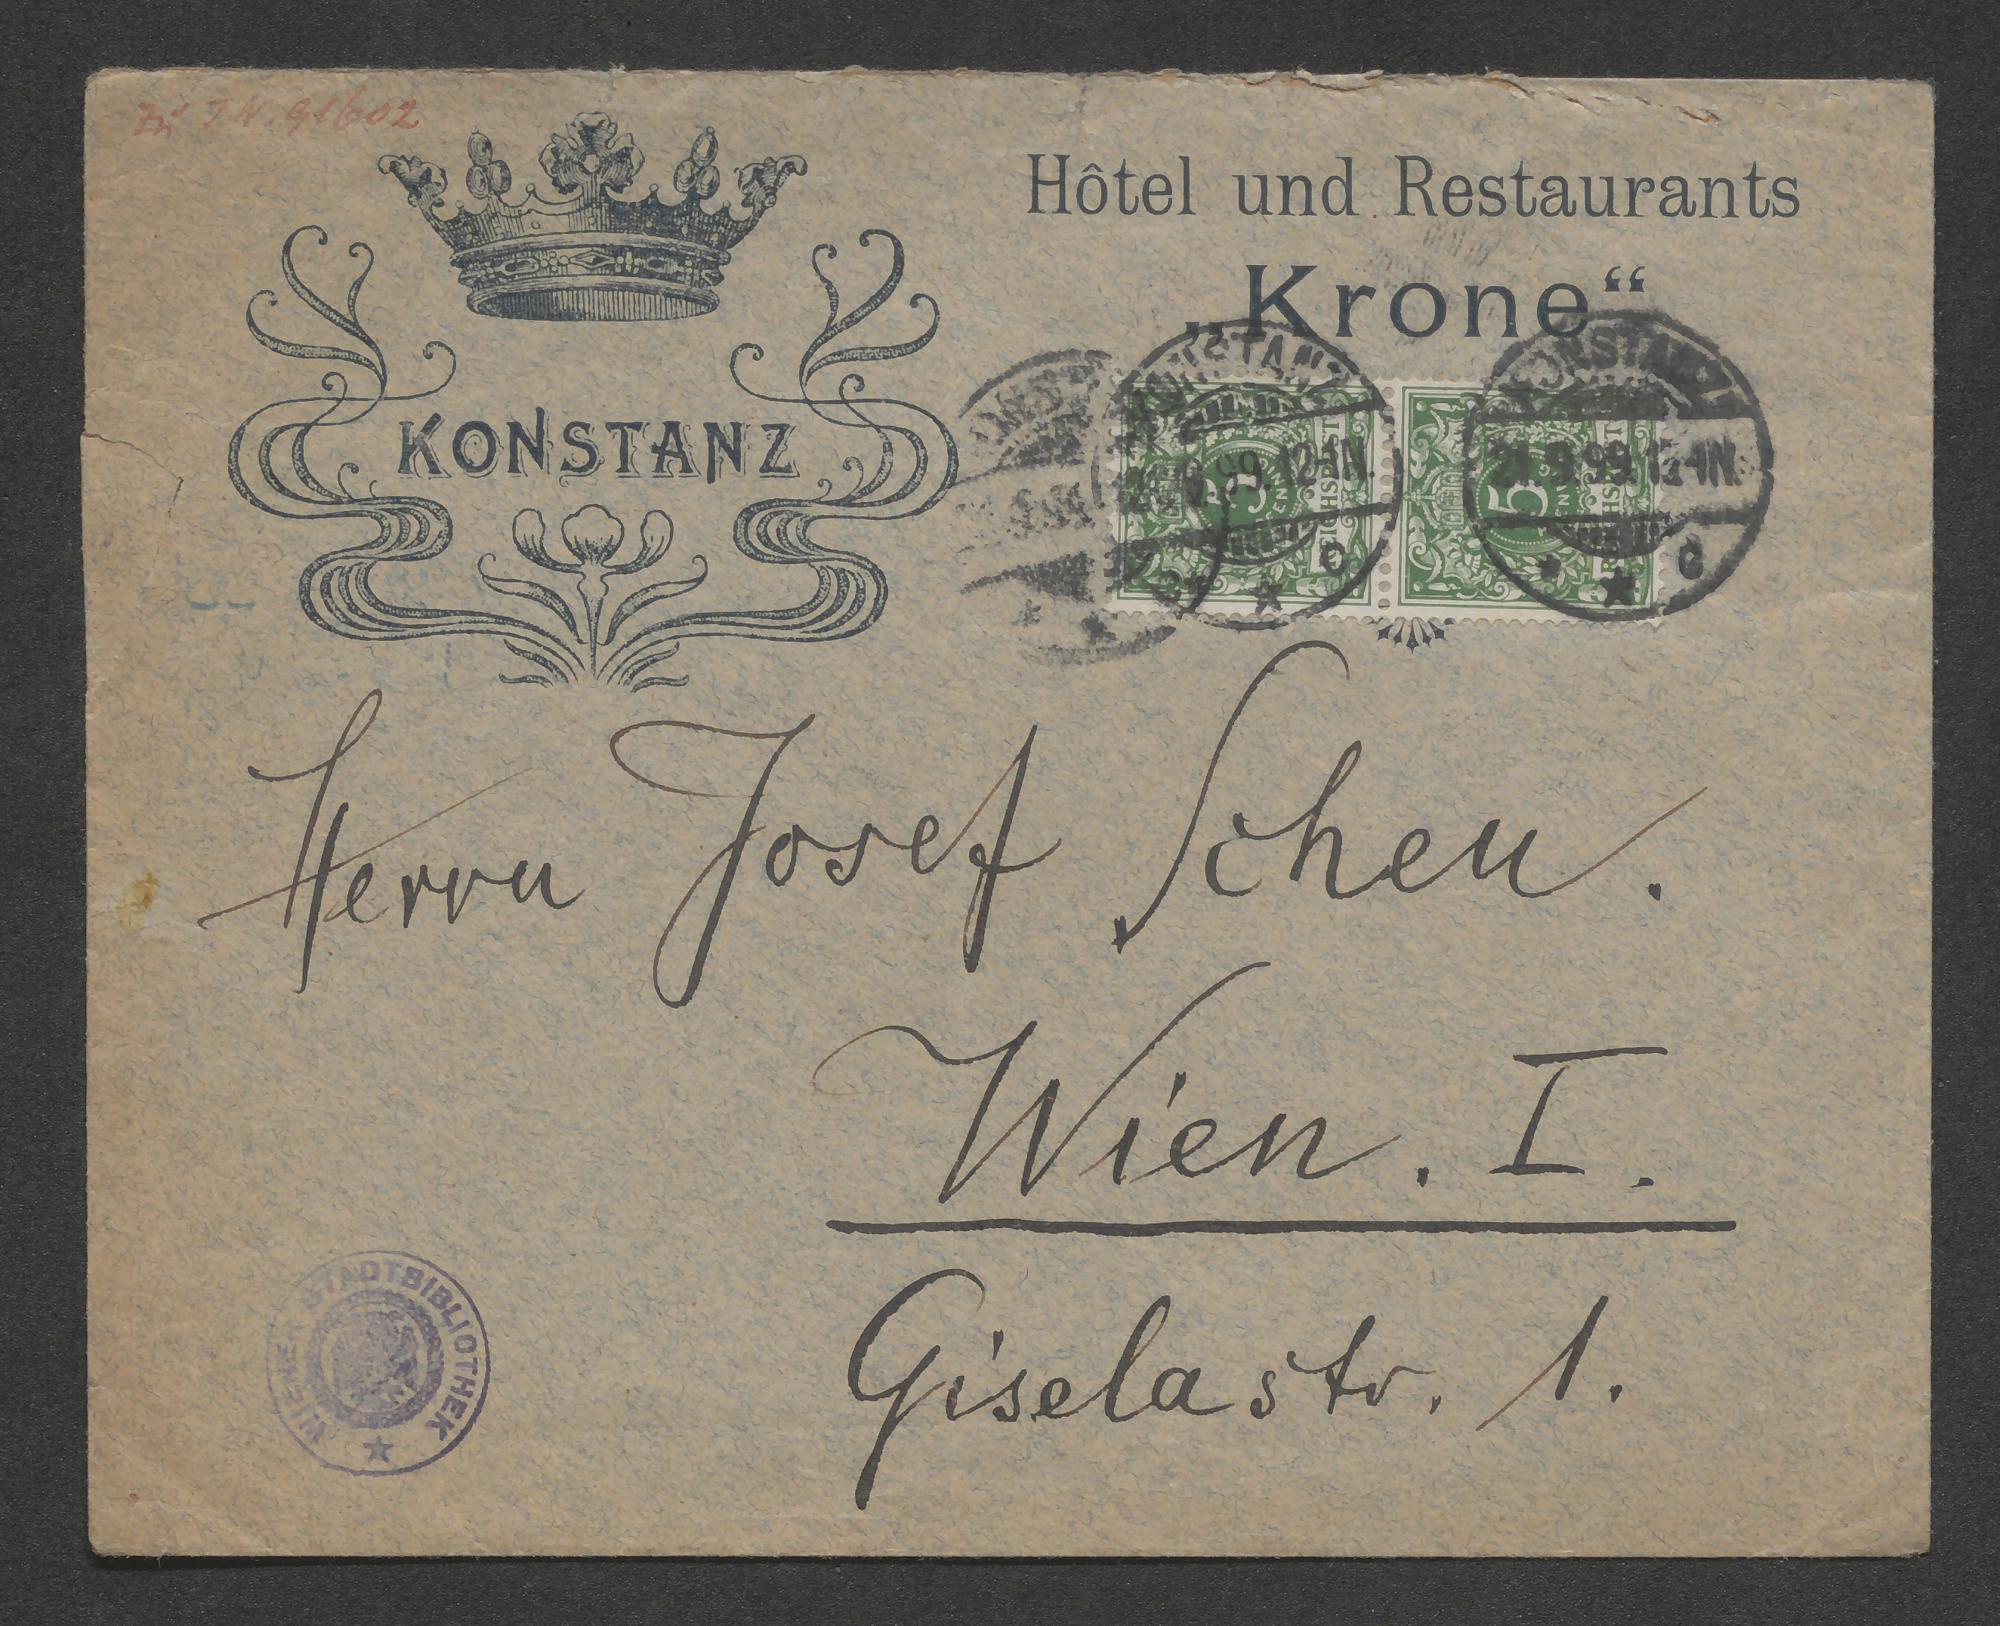 Zu I.N. 91602
Hôtel und Restaurants
„Krone“
KONSTANZ
KONSTANZ
21.9.99.12-1N.
c
KONSTANZ
21.9.99.12-1N.
c
5
5
Herrn Josef Scheu.
Wien. I.
Giselastr. 1.
WIENER STADTBIBLIOTHEK